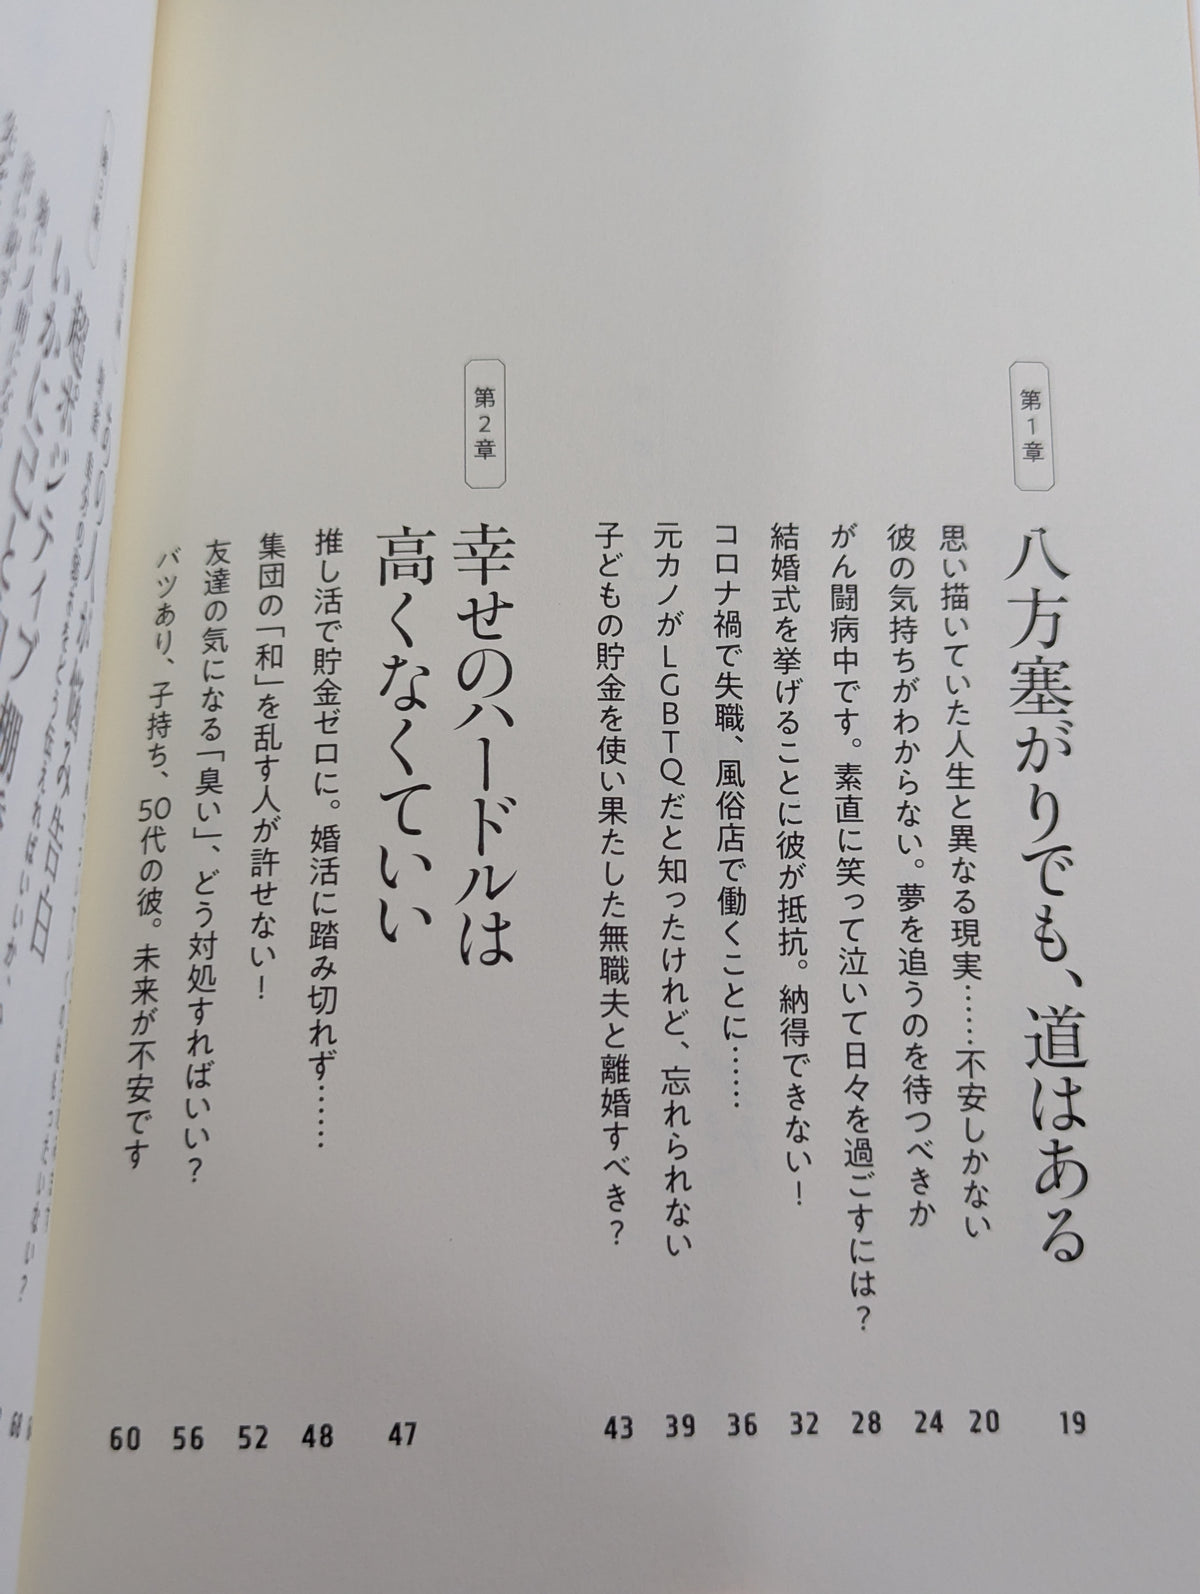 第1章
八方塞がりでも、道はある 19
思い描いていた人生と異なる現実……不安しかない 20
彼の気持ちがわからない。夢を追うのを待つべきか 24
がん闘病中です。素直に笑って泣いて日々を過ごすには？ 28
結婚式を挙げることに彼が抵抗。納得できない！ 32
コロナ禍で失職、風俗店で働くことに…… 36
元カノがLGBTQだと知ったけれど、忘れられない 39
子どもの貯金を使い果たした無職夫と離婚すべき？ 43
第2章
幸せのハードルは
高くなくていい 47
推し活で貯金ゼロに。婚活に踏み切れず…… 48
集団の「和」を乱す人が許せない！ 52
友達の気になる「臭い」、どう対処すればいい？ 56
バツあり、子持ち、50代の彼。未来が不安です 60